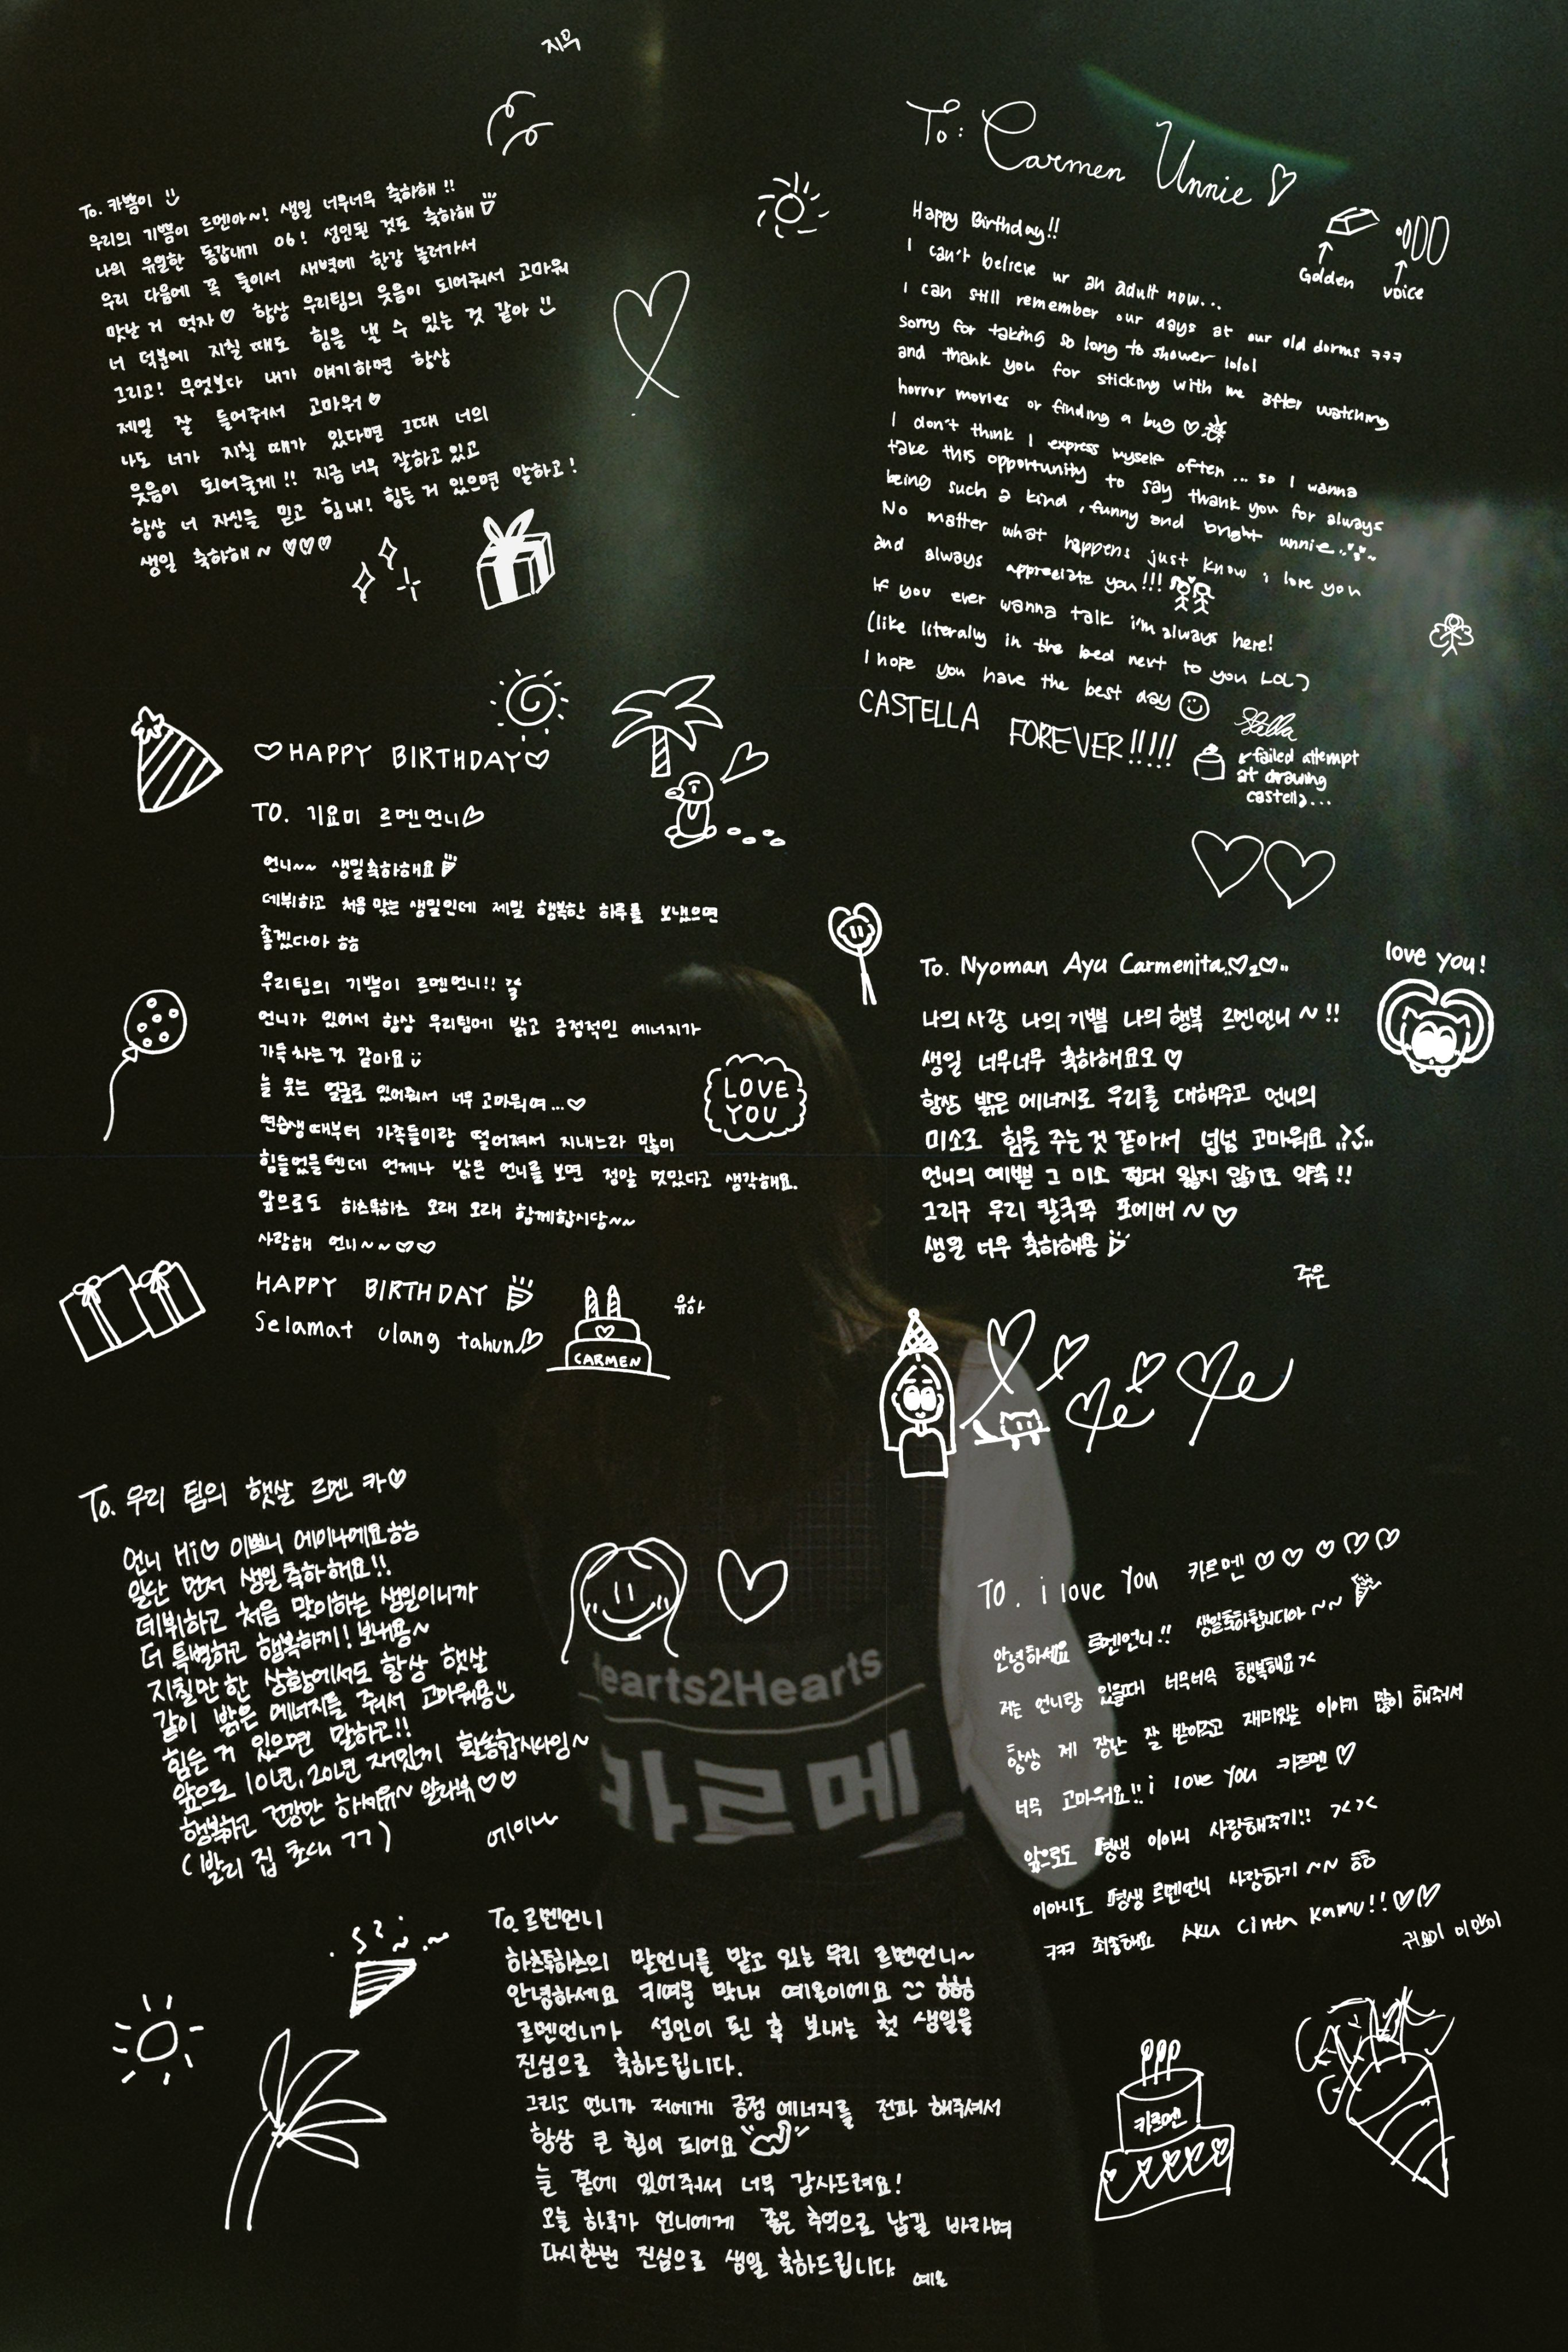 지우
To. 카쁨이
우리의 기쁨이 르멘아~! 생일 너무너무 축하해!!
나의 유일한 동갑내기 06! 성인된 것도 축하해
우리 다음에 꼭 둘이서 새벽에 한강 놀러가서
맛난 거 먹자♡ 항상 우리팀의 웃음이 되어줘서 고마워
너 덕분에 지칠 때도 힘을 낼 수 있는 것 같아
그리고! 무엇보다 내가 얘기하면 항상
제일 잘 들어줘서 고마워♡
나도 너가 지칠 때가 있다면 그때 너의
웃음이 되어줄게!! 지금 너무 잘하고 있고
항상 너 자신을 믿고 힘내! 힘든 거 있으면 말하고!
생일 축하해~ ♡♡♡
To: Carmen Unnie ♡
Golden voice
Happy Birthday!!
I can't believe ur an adult now...
I can still remember our days at our old dorms ㅋㅋㅋ
sorry for taking so long to shower lolol
and thank you for sticking with me after watching
horror movies or finding a bug ♡
I don't think I express myself often... so I wanna
take this opportunity to say thank you for always
being such a kind, funny and bright unnie
No matter what happens just know i love you
and always appreciate you!!!
If you ever wanna talk i'm always here!
(like literally in the bed next to you LOL)
I hope you have the best day
CASTELLA FOREVER!!!!!
Stella
failed attempt
at drawing
castella...
♡HAPPY BIRTHDAY♡
TO. 기요미 르멘언니♡
언니~~ 생일축하해요
데뷔하고 처음 맞는 생일인데 제일 행복한 하루를 보냈으면
좋겠다아 ㅎㅎ
우리팀의 기쁨이 르멘언니!!
언니가 있어서 항상 우리팀에 밝고 긍정적인 에너지가
가득 차는 것 같아요
늘 웃는 얼굴로 있어줘서 너무 고마워여...♡
연습생때부터 가족들이랑 떨어져서 지내느라 많이
힘들었을텐데 언제나 밝은 언니를 보면 정말 멋있다고 생각해요.
앞으로도 하츠투하츠 오래 오래 함께합시당~~
사랑해 언니~~♡♡
HAPPY BIRTHDAY
Selamat ulang tahun♡
CARMEN
유하
LOVE
YOU
To. Nyoman Ayu Carmenita..♡2♡..
나의 사랑 나의 기쁨 나의 행복 르멘언니~!!
생일 너무너무 축하해요오 ♡
항상 밝은 에너지로 우리를 대해주고 언니의
미소로 힘을 주는 것 같아서 넘넘 고마워요
언니의 예쁜 그 미소 절대 잃지 않기로 약속!!
그리구 우리 칼국쭈 포에버~♡
생일 너무 축하해용
주은
love you!
To. 우리 팀의 햇살 르멘 카♡
언니 Hi♡ 이쁘니 에이나에요ㅎㅎ
일단 먼저 생일축하해요!!
데뷔하고 처음 맞이하는 생일이니까
더 특별하고 행복하게! 보내용~
지칠만한 상황에서도 항상 햇살
같이 밝은 에너지를 줘서 고마워용
힘든 거 있으면 말하고!!
앞으로 10년, 20년 재밌게 활동합시다잉~
행복하고 건강만 하셔유~ 알라뷰♡♡
(발리 집 초대 ㄱㄱ)
에이나
Hearts2Hearts
카르메
TO. i love You 카르멘 ♡♡♡♡♡
안녕하세요 르멘언니!! 생일축하합니디아~~
저는 언니랑 있을때 너무너무 행복해요><
항상 제 장난 잘 받아주고 재미있는 이야기 많이 해줘서
너무 고마워요!! i love You 카르멘 ♡
앞으로도 평생 이아니 사랑해주기!! ><><
이아니도 평생 르멘언니 사랑하기~~ ㅎㅎ
ㅋㅋㅋ 죄송해요 AKu cinta Kamu!!♡♡
카르멘
To. 르멘언니
하츠투하츠의 맏언니를 맡고 있는 우리 르멘언니~
안녕하세요 귀여운 막내 예온이에요 ㅎㅎㅎ
르멘언니가 성인이 된 후 보내는 첫 생일을
진심으로 축하드립니다.
그리고 언니가 저에게 긍정 에너지를 전파 해주셔서
항상 큰 힘이 되어요
늘 곁에 있어줘서 너무 감사드려요!
오늘 하루가 언니에게 좋은 추억으로 남길 바라며
다시한번 진심으로 생일 축하드립니다.
예온